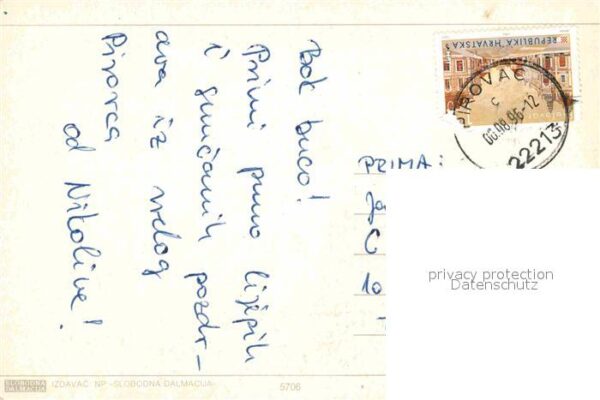 Bok buco!
Primi puno lijepih
i sunčanih pozdr-
ava iz vrelog
Pirovca
od Nikoline!
REPUBLIKA HRVATSKA
PIROVAC
c
06.08.96-12
22213
PRIMA:
10
privacy protection
Datenschutz
SLOBODNA
DALMACIJA
IZDAVAČ NP «SLOBODNA DALMACIJA»
5706